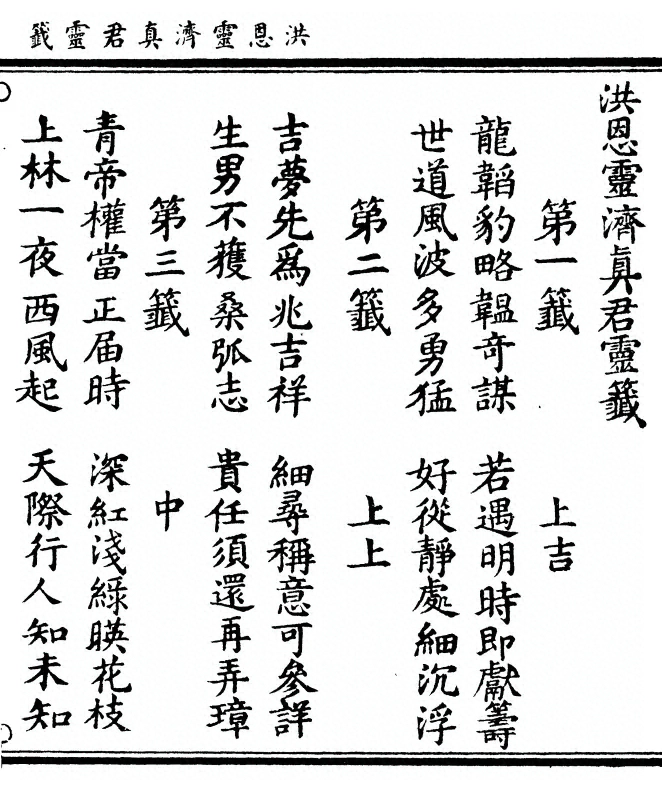 洪恩靈濟真君靈籤
洪恩靈濟眞君靈籤
第一籤　上吉
龍韜豹略韞奇謀　若遇明時即獻籌
世道風波多勇猛　好從靜處細沉浮
第二籤　上上
吉夢先爲兆吉祥　細尋稱意可參詳
生男不獲桑弧志　貴任須還再弄璋
第三籤　中
青帝權當正届時　深紅淺綠暎花枝
上林一夜西風起　天際行人知未知